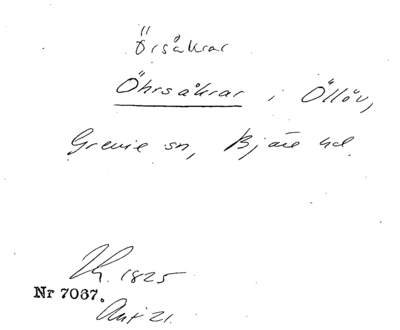 Örsåkrar
Öhrsåkrar i Öllöv,
Grevie sn, Bjäre hd.
1825
Nr 7067.
Akt 21.